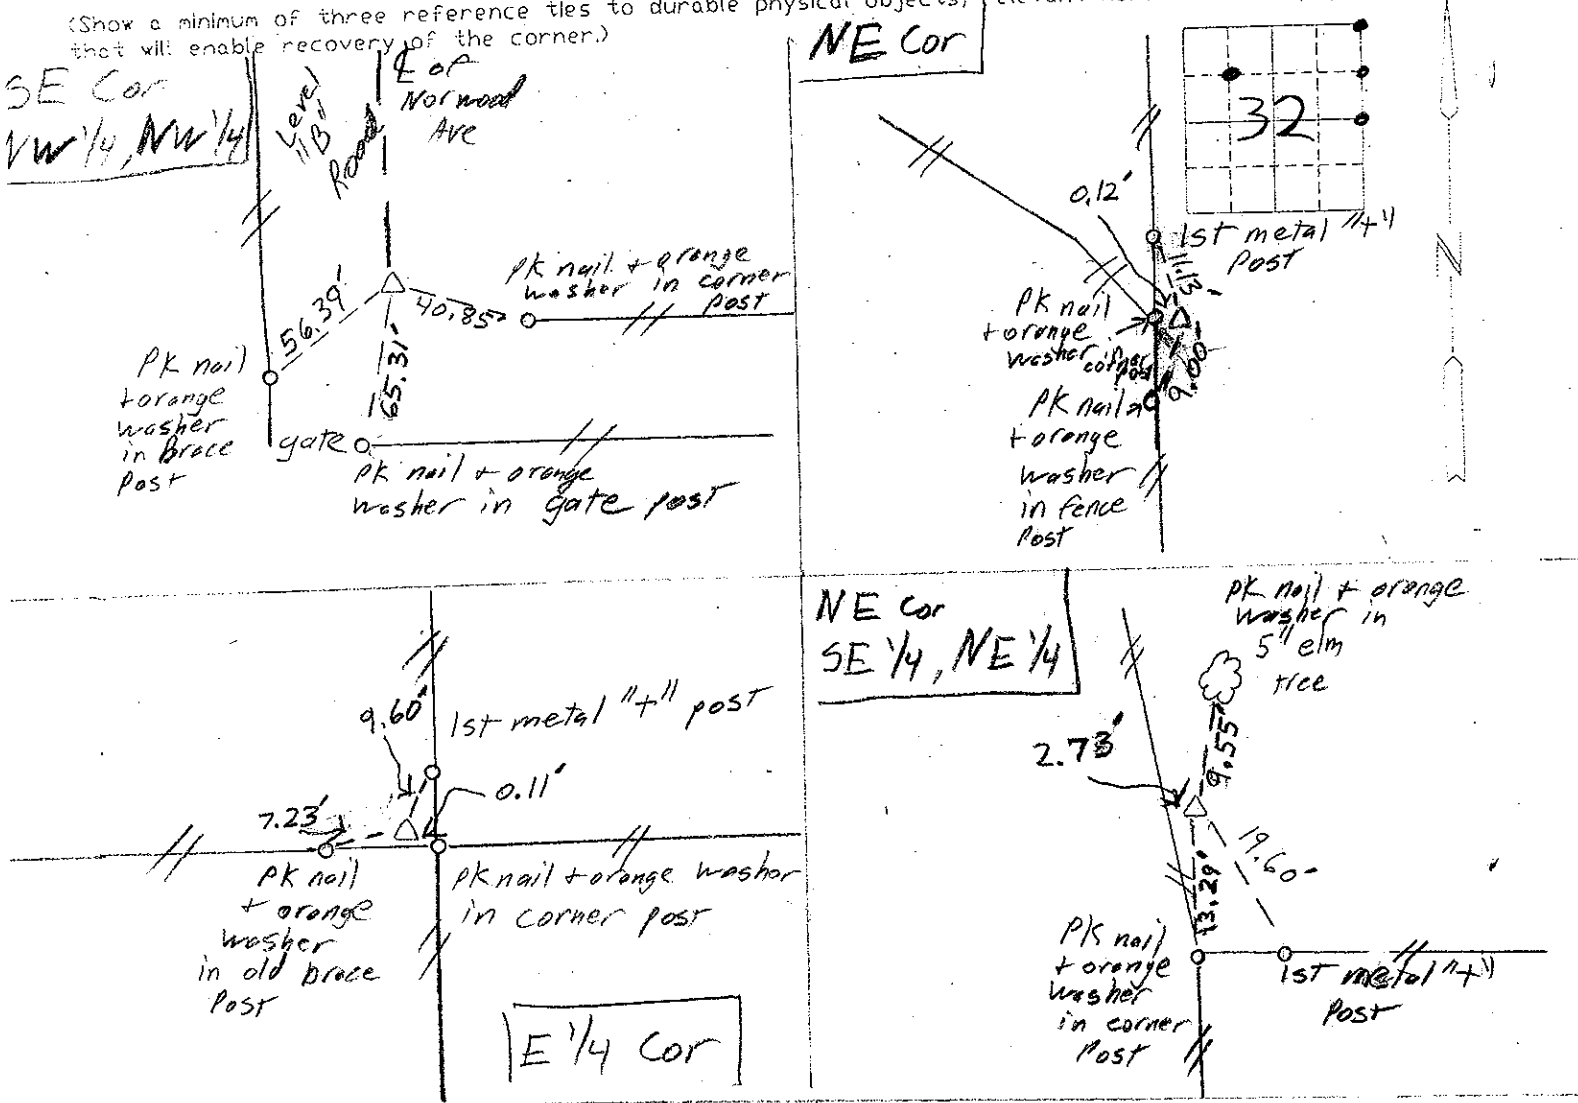 (Show a minimum of three reference ties to durable physical objects,
that will enable recovery of the corner.)
SE Cor
NW 1/4, NW 1/4
Level
"B"
Road
℄ of
Norwood
Ave
56.39'
40.85'
65.31'
PK nail + orange
washer in corner
post
PK nail
+ orange
washer
in Brace
Post
gate
PK nail + orange
washer in gate post
NE Cor
32
N
0.12'
1st metal "+"
Post
11.13'
PK nail
+ orange
washer
corner
post
9.00'
PK nail
+ orange
washer
in fence
Post
9.60'
1st metal "+" post
0.11'
7.23'
PK nail
+ orange
washer
in old brace
Post
PK nail + orange washer
in corner post
E 1/4 Cor
NE Cor
SE 1/4, NE 1/4
PK nail + orange
washer in
5" elm
tree
2.73'
9.55'
19.60'
13.29'
PK nail
+ orange
washer
in corner
Post
1st metal "+"
Post